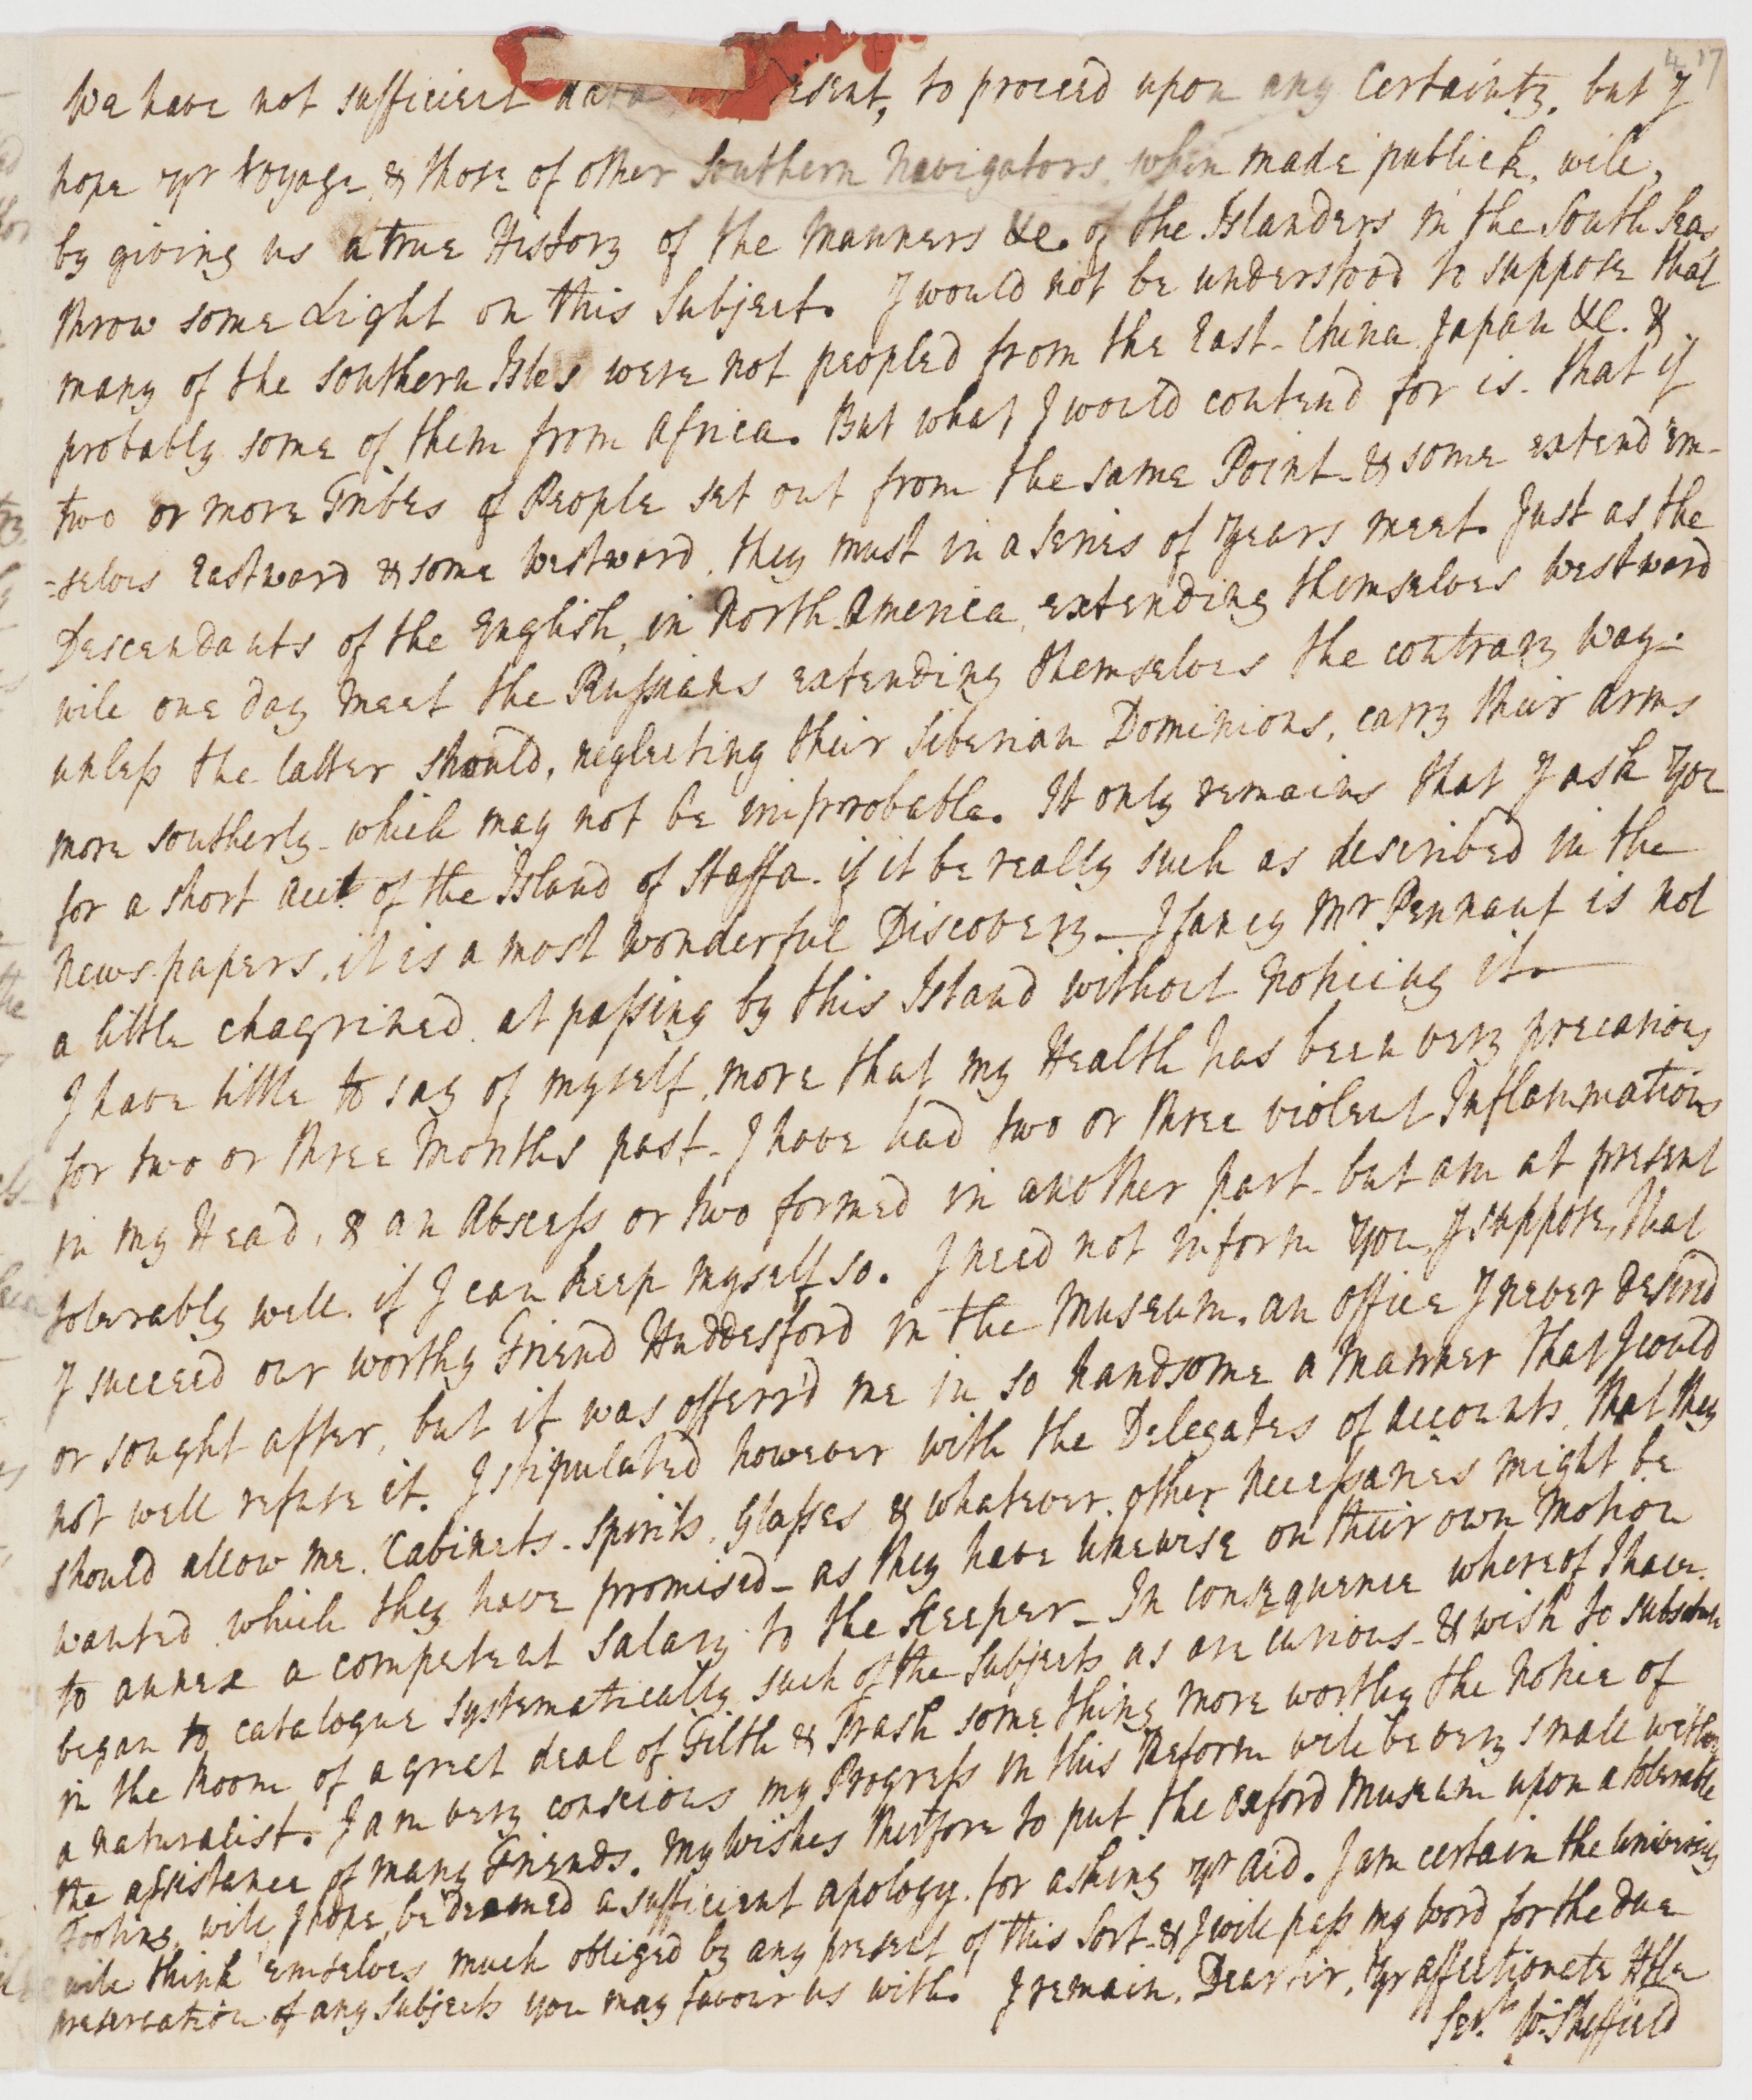 417
We have not sufficient data at present, to proceed upon any Certainty, but I
hope yr Voyage, & those of other Southern Navigators, when made publick, will,
by giving us a true History of the Manners &c. of the Islanders in the South Seas
throw some Light on this Subject. I would not be understood to suppose that
many of the southern Isles were not peopled from the East - China Japan &c. &
probably some of them from Africa. But what I would contend for is - that if
two or more Tribes of People set out from the same Point - & some extend 'em-
-selves Eastward & some Westward, they must in a series of years meet. Just as the
Descendants of the English, in North America, extending themselves Westward
will one day meet the Russians extending themselves the contrary way -
unless the latter should, neglecting their Siberian Dominions, carry their arms
more southerly - which may not be improbable. It only remains that I ask you
for a short acct of the Island of Staffa - if it be really such as described in the
Newspapers, it is a most wonderful Discovery - I fancy Mr Pennant is not
a little chagrined at passing by this Island without noticing it -
I have little to say of myself, more that my Health has been very precarious
for two or three Months past - I have had two or three violent Inflammations
in my Head, & an Abscess or two formed in another part - but am at present
tolerably well, if I can keep myself so. I need not inform you, I suppose, that
I succeed our worthy Friend Huddesford in the Museum, an office I never desired
or sought after, but it was offerr'd me in so handsome a manner that I could
not well refuse it. I stipulated however with the Delegates of accounts, that they
should allow me Cabinets - Spirits, Glasses & whatever other necessaries might be
wanted, which they have promised - as they have likewise on their own Motion
to annex a competent Salary to the Keeper - In consequence whereof I have
began to catalogue systematically such of the Subjects as are curious - & wish to substitute
in the Room of a great deal of Filth & Trash something more worthy the Notice of
a naturalist. I am very conscious my Progress in this Reform will be very small without
the assistance of many Friends. My wishes therefore to put the Oxford Museum upon a tolerable
Footing, will, I hope, be deemed a sufficient apology for asking yr aid. I am certain the University
will think 'emselves much obliged by any present of this Sort - & I will pass my word for the due
preservation of any subjects you may favour us with. I remain, Dear Sir, Yr affectionate Hble
Servt W: Sheffield